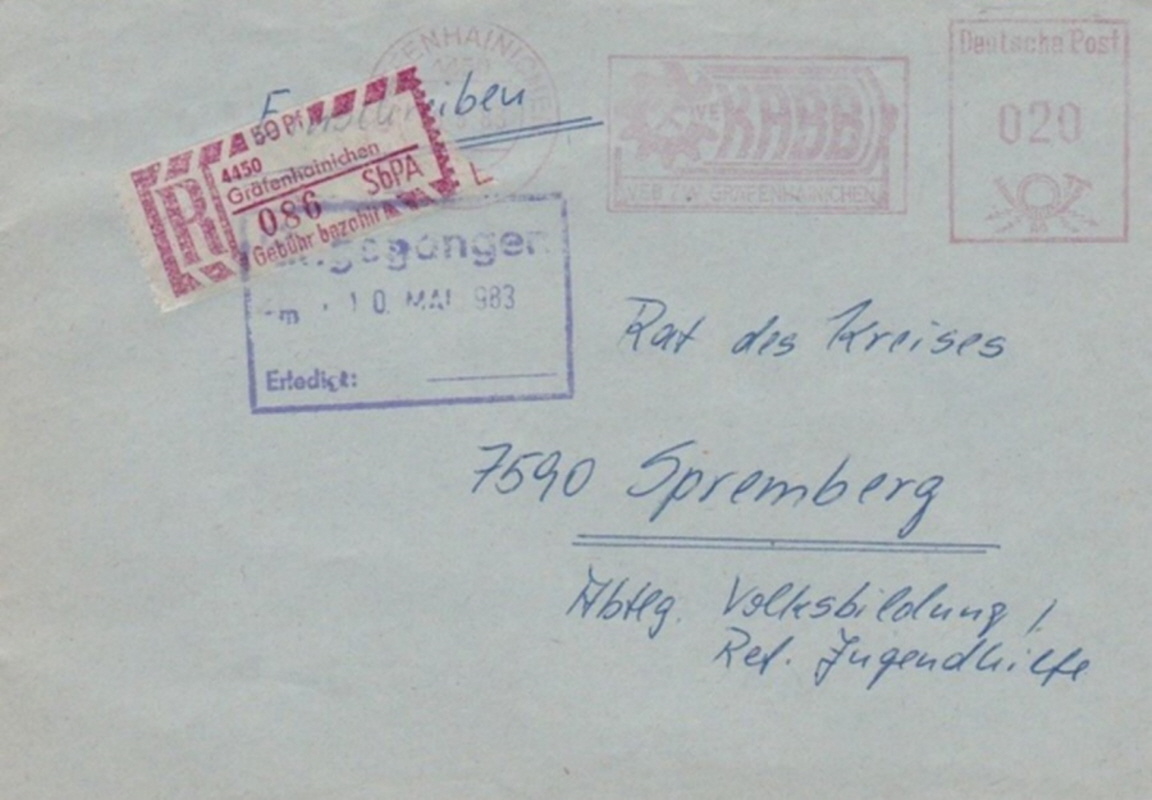 Deutsche Post
020
KABB
VEB ZW. GRÄFENHAINICHEN
Einschreiben
50 Pf
R
4450
Gräfenhainichen
086 SbPA
Gebühr bezahlt
Eingegangen
am 10. MAI 1983
Erledigt:
Rat des Kreises
7590 Spremberg
Abtlg. Volksbildung /
Ref. Jugendhilfe